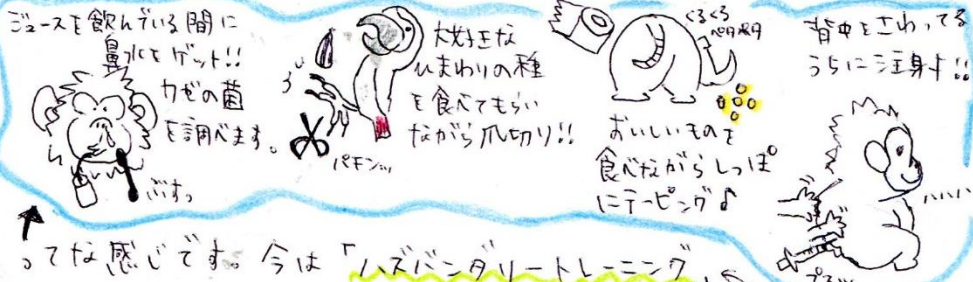 ジュースを飲んでいる間に
鼻水をゲット!!
カゼの菌
を調べます。
ぶすっ
大好きな
ひまわりの種
を食べてもらい
ながら爪切り!!
パチンッ
くるくる
ペタペタ
おいしいものを
食べながらしっぽ
にテーピング♪
背中をさわってる
うちに注射!!
ハハハ
プスッ
ってな感じです。今は「ハズバンダリートレーニング」